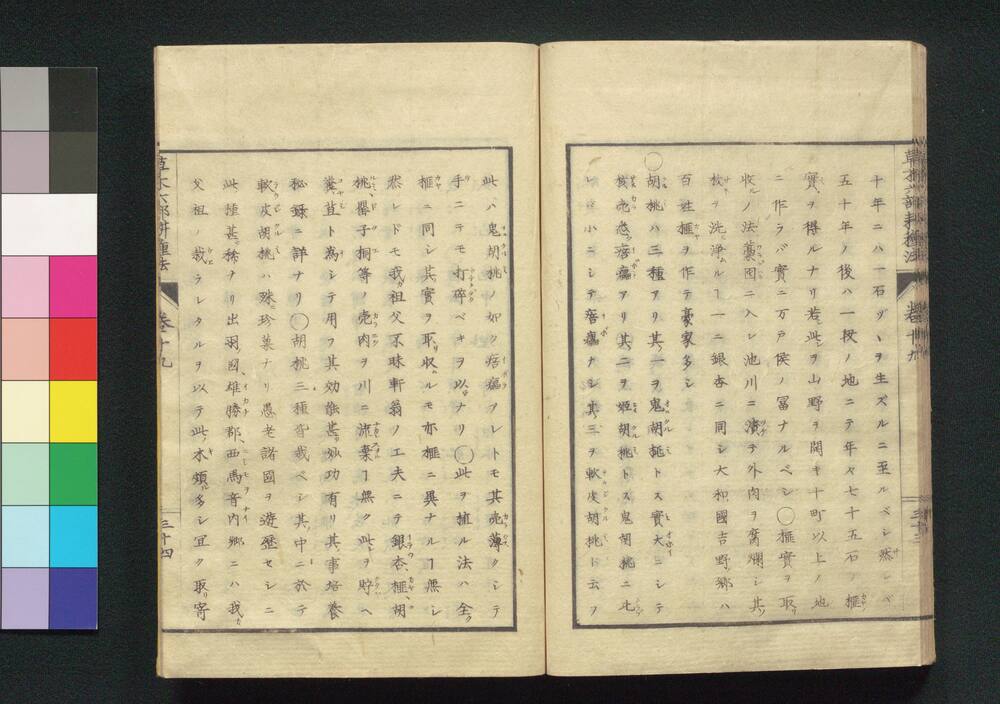 十年ニハ一石ヅヽヲ生ズルニ至ルベシ然レバ
五十年ノ後ハ一段ノ地ニテ年々七十五石榧
實ヲ得ルナリ若シ此レヲ山野ヲ開キ十町以上ノ地
ニ作ラバ實ニ万戸侯ノ冨ナルベシ〇榧實ヲ取リ
收ルノ法藁囤ニ入レ池川ニ漬ケ外肉ヲ腐爛シ其ノ
核ヲ洗浄ムルヿ一ニ銀杏ニ同シ大和國吉野郷ハ
百姓榧ヲ作テ豪家多シ
〇胡桃ハ三種アリ其ノ一ヲ鬼胡桃トス實大ニシテ
核売悉ク痞癗アリ其ノ二ヲ姫胡桃トス鬼胡桃ニ比
レバ小ニシテ痞癗ナシ其ノ三ヲ軟皮胡桃ト云フ
草木六部耕種法 巻十九 三十三
此レハ鬼胡桃ノ如ク痞癗アレトモ其売薄クシテ
手ニテモ打碎ベキヲ以テナリ〇此ヲ植ル法ハ全ク
榧ニ同シ其實ヲ取リ收ルモ亦榧ニ異ナルヿ無シ
然レドモ我ガ祖父不昧軒翁ノ工夫ニテ銀杏、榧、胡
桃、罌子桐等ノ売肉ヲ川ニ流棄ヿ無ク此レヲ貯ヘ
糞苴ト為シテ用フ其効能甚タ妙功有リ其事培養
秘録ニ詳ナリ〇胡桃三種皆栽ベシ其中ニ於テ
軟皮胡桃ハ殊ニ珍菓ナリ愚老諸國ヲ遊歴セシニ
此種甚タ稀ナリ出羽國、雄勝郡、西馬音内郷ニハ我ガ
父祖ノ栽ラレタルヲ以テ此ノ木頗ル多シ宜ク取リ寄
草木六部耕種法 巻十九 三十四